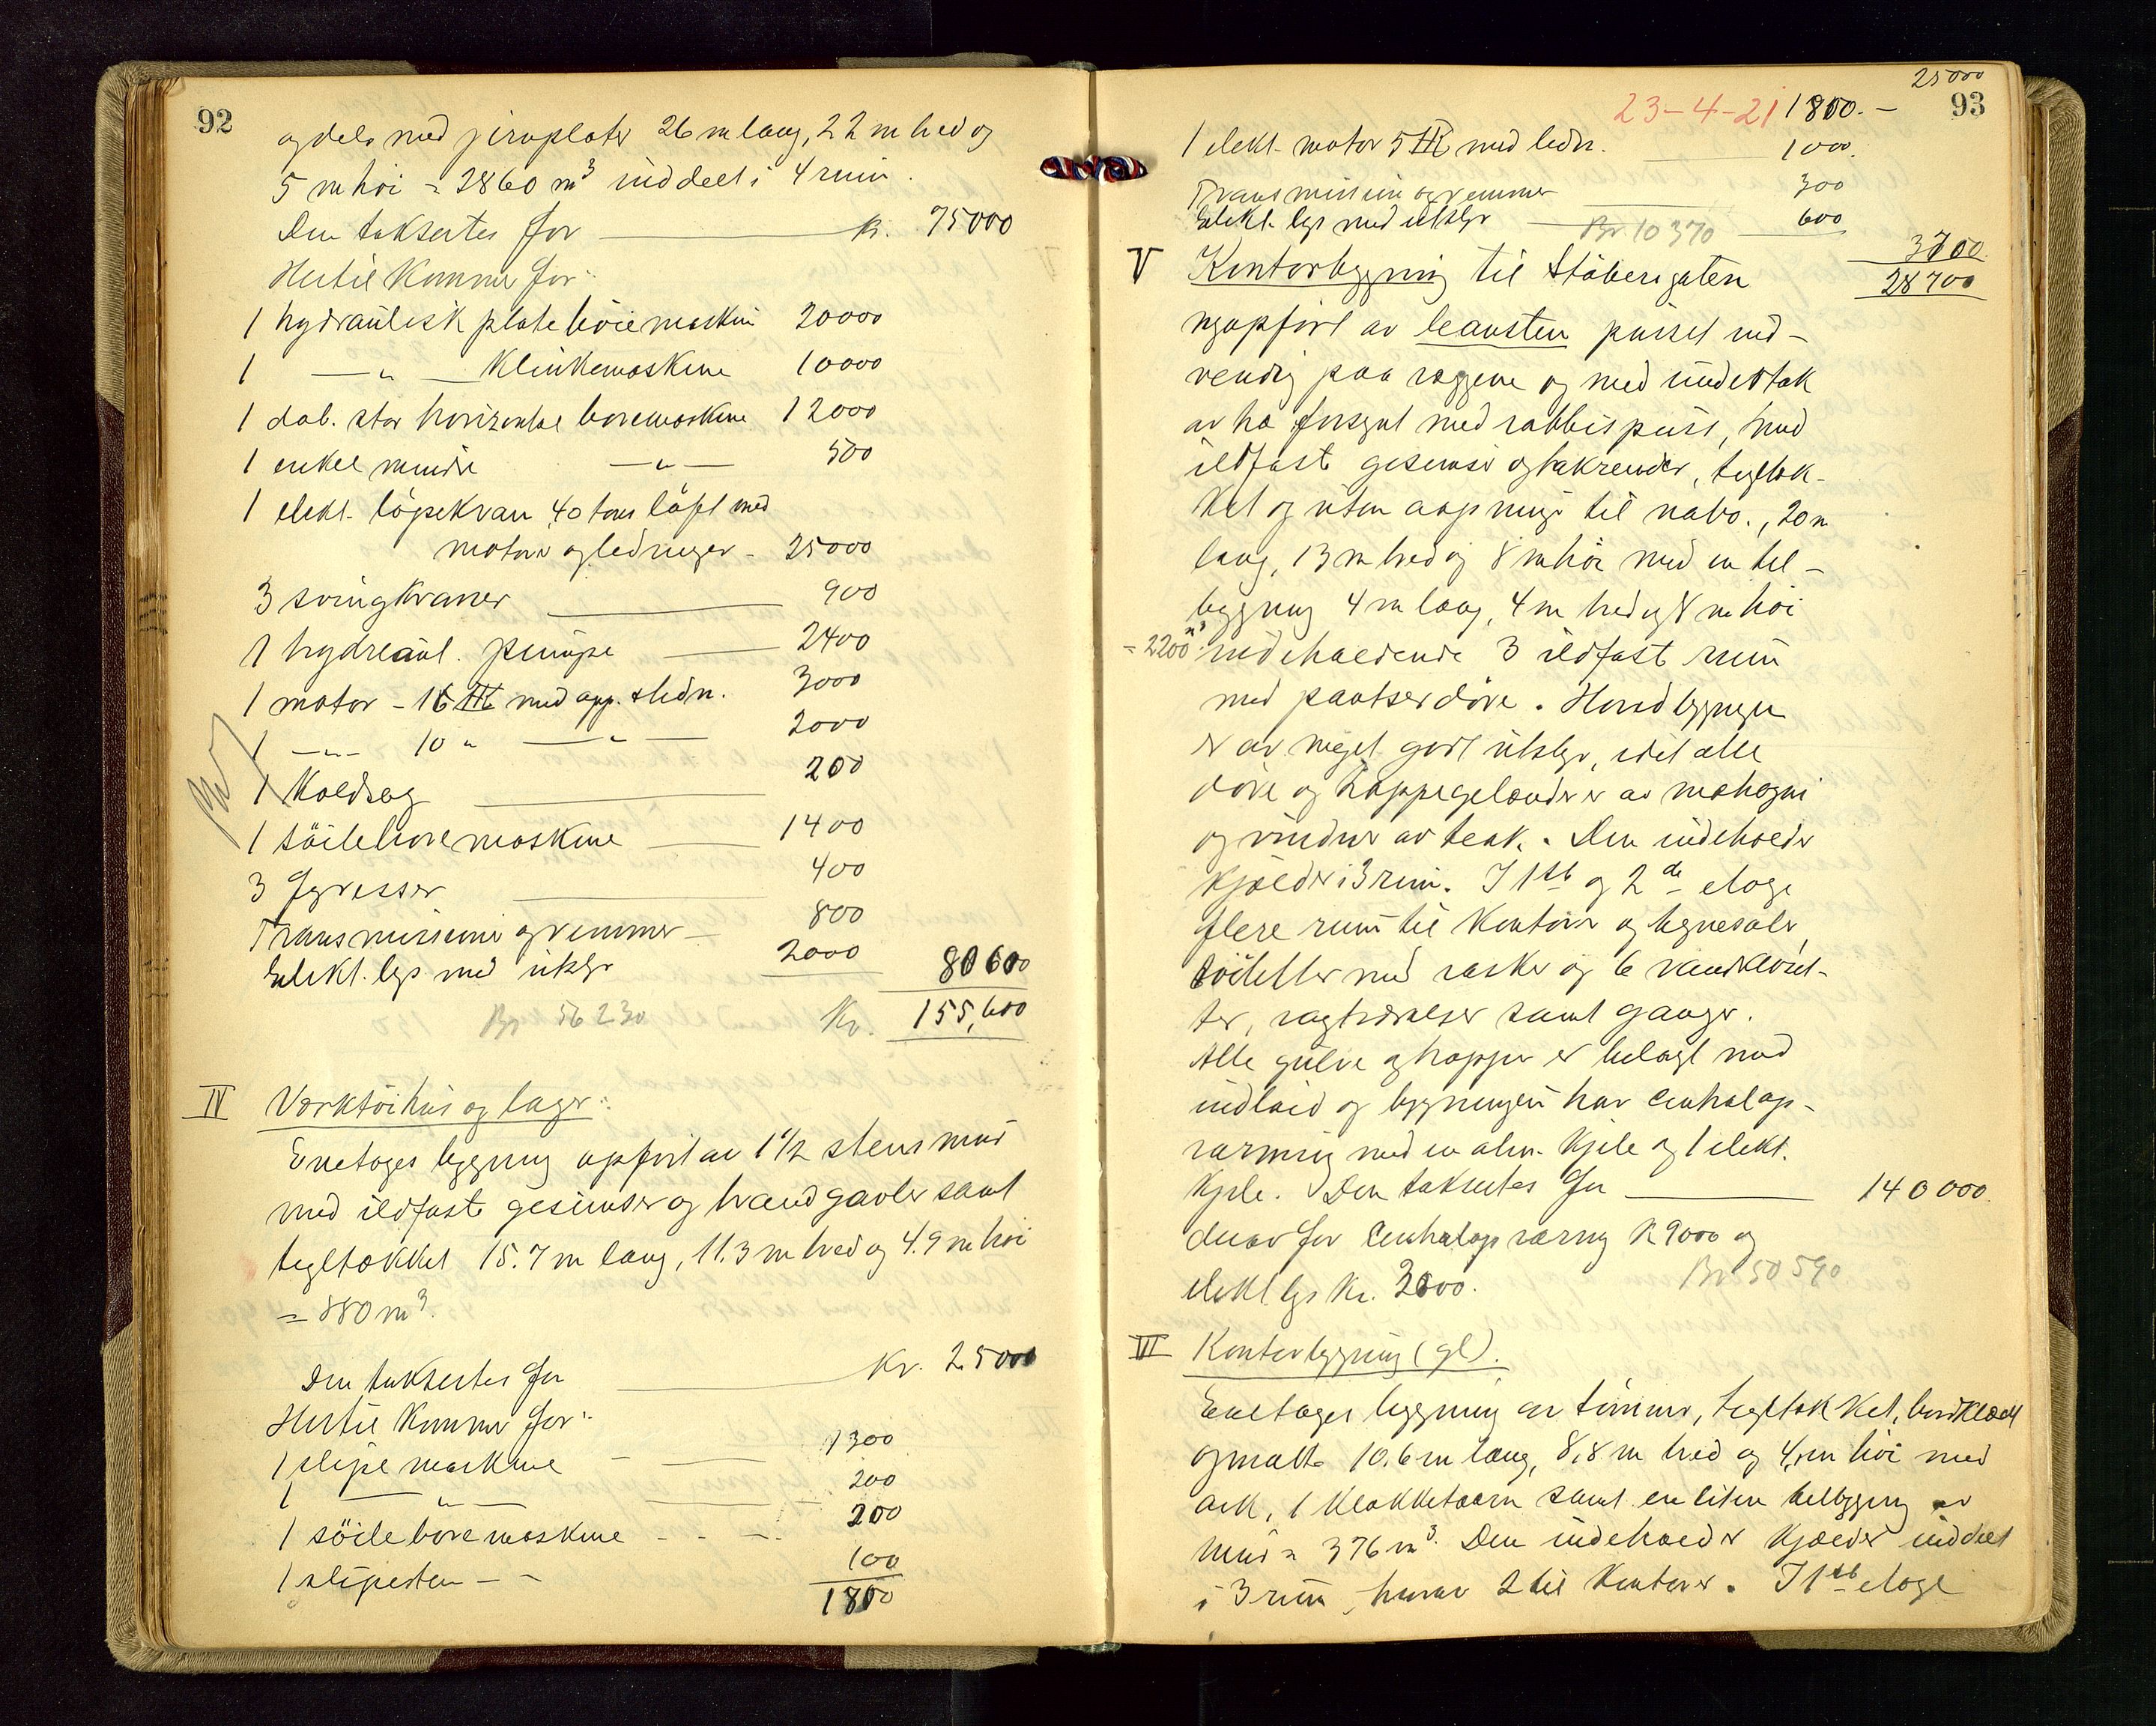 92
og dels med jernplater 26 m lang, 22 m bred og
5 m høi = 2860 m³ inddelt i 4 rum.
Den takseres for kr. 75000
Hertil kommer for:
1 hydraulisk plate bøiemaskin 20000
1 —„— Klinkemaskine 10000
1 dob. stor horizontal boremaskine 12000
1 enkel mindre —„— 500
1 elekt. løpekran 40 tons løft med
motorer og ledninger - 25000
3 svingkraner 900
1 hydraul. pumpe 2400
1 motor - 16 HK med app. & ledn. 3000
1 —„— 10 „ —„— 2000
1 Koldsag 200
1 söileboremaskine 1400
3 Fgresser 400
Transmissioner og remmer 800
Elekt. lys med utstyr 2000 80600
Br 56230 Kr. 155,600
IV Verktöihus og lager:
Enetages bygning opført av 1 1/2 stens mur
med ildfaste gesimser og brandgavler samt
tegltækket 15.7 m lang, 11.3 m bred og 4.9 m høi
= 880 m³.
Den takseres for Kr. 25000
Hertil kommer for:
1 slipemaskine 1300
1 —„— 200
1 söileboremaskine - - - 200
1 slipesten - - 100
1800
25000
23-4-21 1800.- 93
1 elekt. motor 5 HK med ledn. 1000.
Transmission og remmer 300
Elekt. lys med utstyr 600
Br 10370 3700.
V Kontorbygning til Stöberigaten 28700
nyopført av leausten pusset ind-
vendig paa væggene og med undertak
av træ forsynt med rabbispuss, med
ildfaste gesimser og takrender, tegltæk-
ket og uten aapninger til nabo., 20 m
lang, 13 m bred og 8 m høi med en til-
bygning 4 m lang, 4 m bred og 8 m høi
= 2200 m³ indeholdende 3 ildfaste rum
med pantserdöre. Hovedbygningen
er av meget godt utstyr, idet alle
döre og trappegelænder er av mahogni
og vinduer av teak. Den indeholder
kjælder i 3 rum. I 1ste og 2de etage
flere rum til kontorer og tegnesaler,
toiletter med vasker og 6 vandklosет-
ter, vagtværelser samt ganger.
Alle gulve og trapper er belagt med
indlaid og bygningen har centralop-
varming med en alm. kjele og 1 elekt.
kjele. Den takseres for 140000.
derav for centralopvarmg K 9000 og
elekt lys kr. 3000. Br 50590
VI Kontorbygning (gl).
Enetages bygning av tømmer, tegltækket, bordklædt
og malt 10.6 m lang, 8,8 m bred og 4, m høi med
ark, 1 klokketaarn samt en liten tilbygning av
mur = 376 m³. Den indeholder kjælder inddelt
i 3 rum, hvorav 2 til kontorer. I 1ste etage